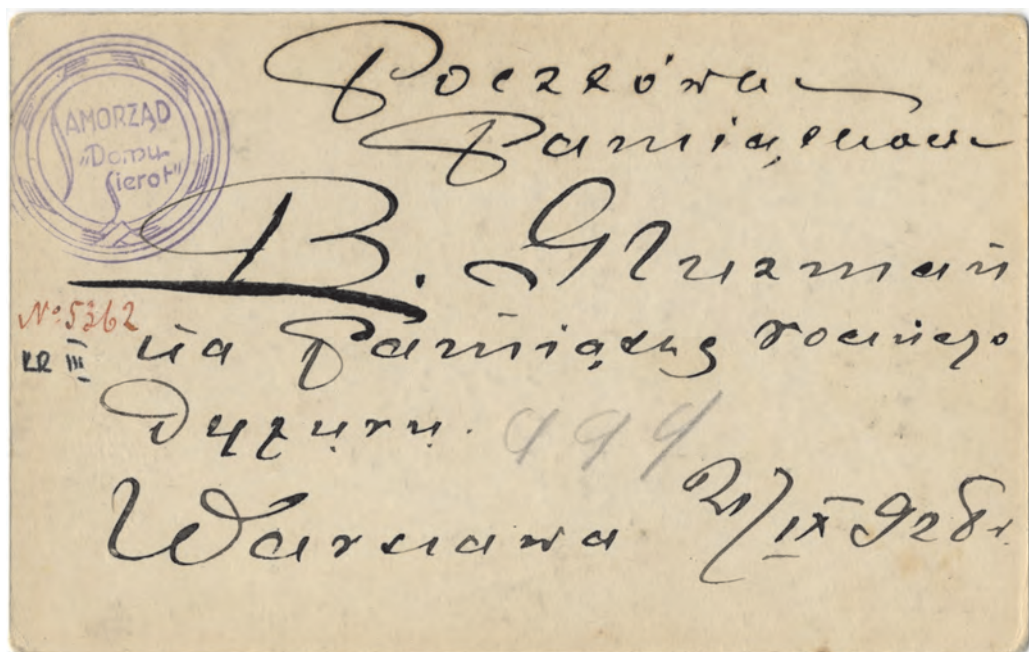 SAMORZĄD
"Domu
Sierot"
Pocztówka
Pamiątkowa
B. Gluzman
Nº 5362
KR III
na Pamiątkę rocznego
Dyżuru.
Warszawa 21/IX 928 r.